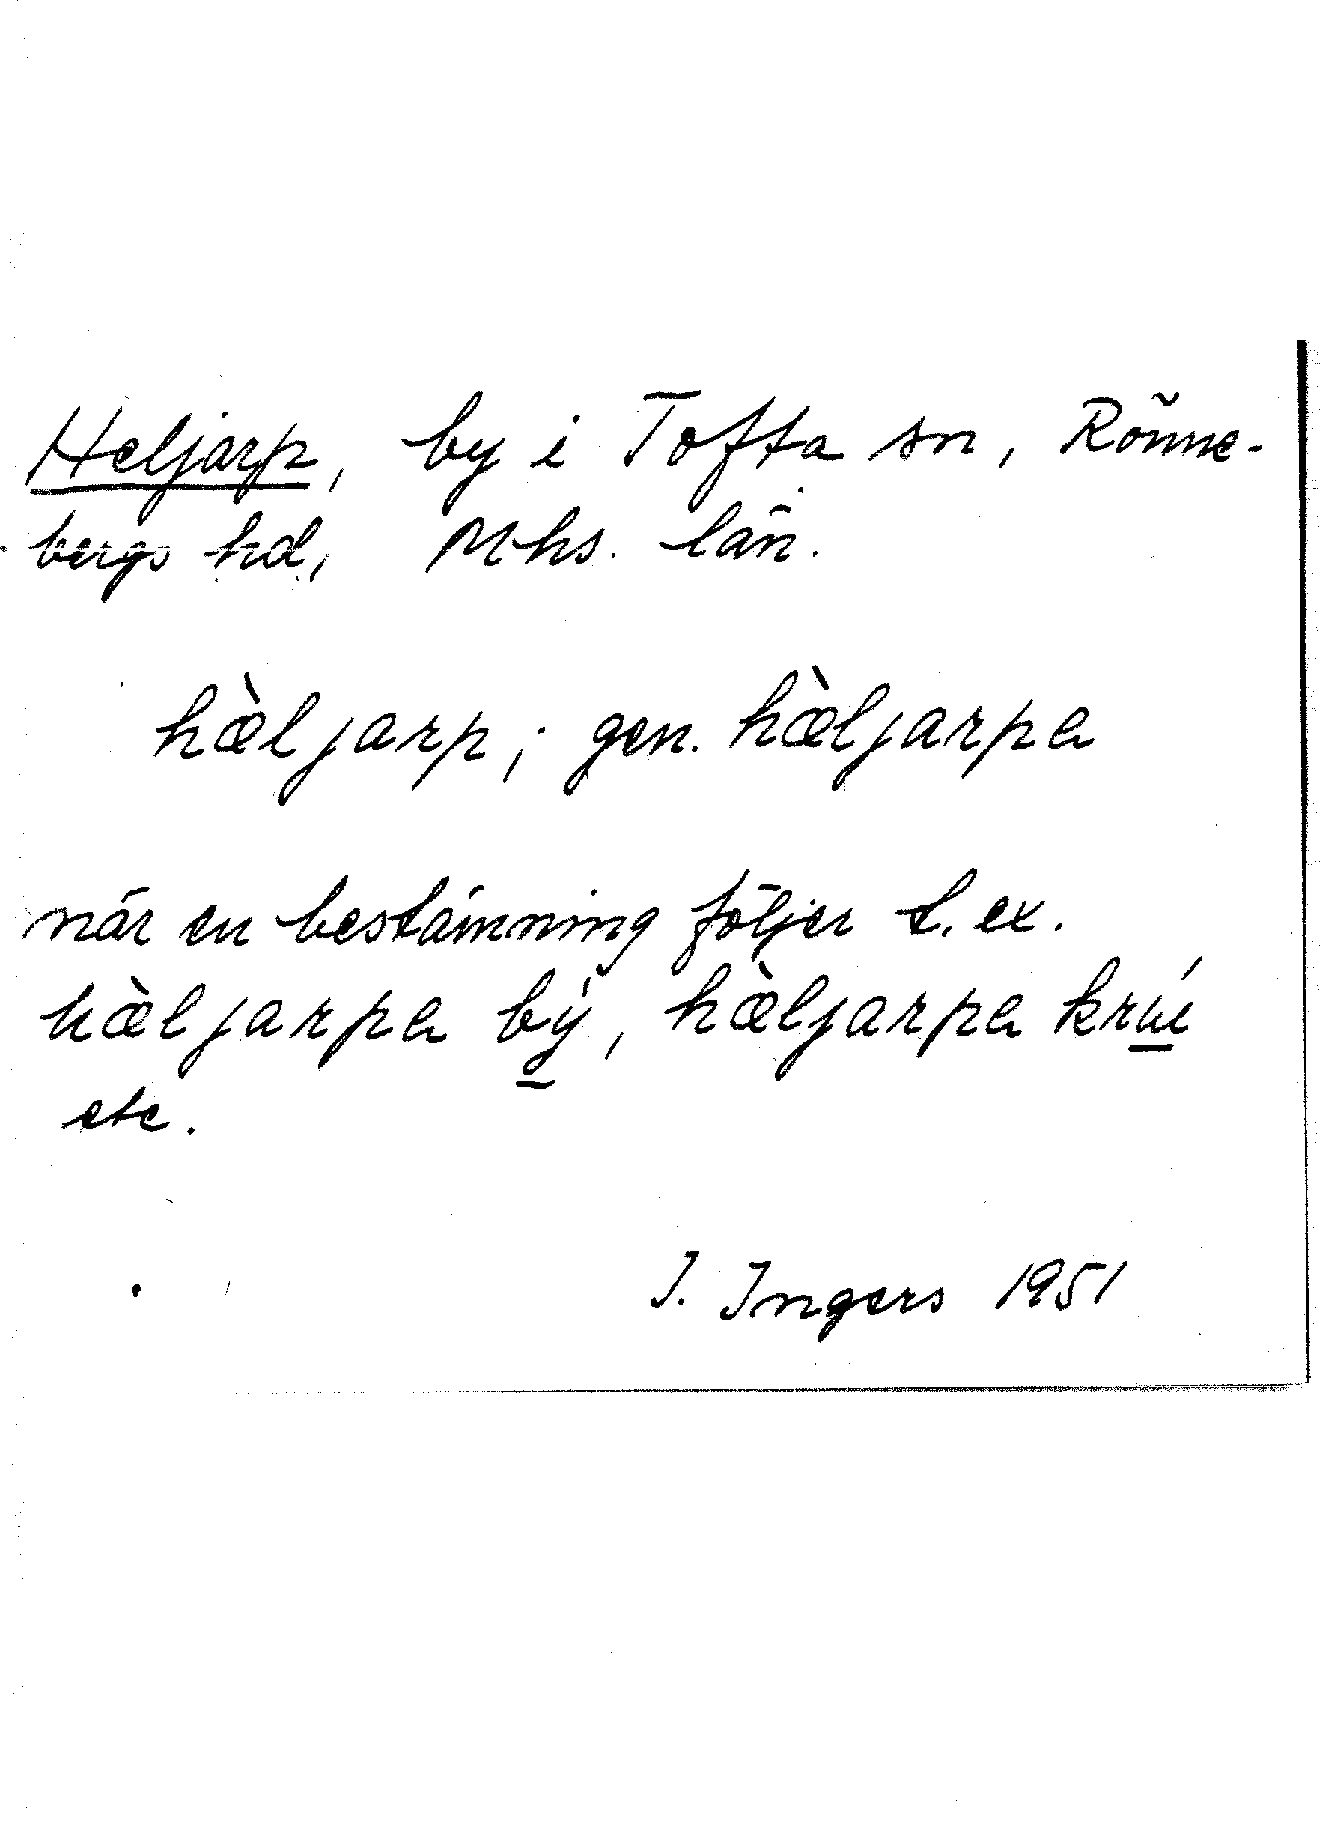 Heljarp, by i Tofta sn, Rönne-
bergs hd, Mhs. län.
hæ̀ljarp; gen. hæ̀ljarpa
när en bestämning följer t.ex.
hæ̀ljarpa bý, hæ̀ljarpa
etc.
I. Ingers 1951